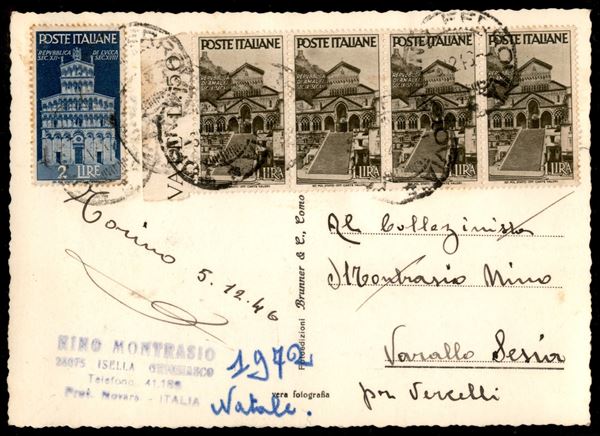 POSTE ITALIANE
REPVBBLICA DI LVCCA
SEC. XII - SEC. XVIII
2 LIRE
POSTE ITALIANE
REPVBBLICA
DI AMALFI
1 LIRA
POSTE ITALIANE
REPVBBLICA
DI AMALFI
1 LIRA
POSTE ITALIANE
REPVBBLICA
DI AMALFI
1 LIRA
POSTE ITALIANE
REPVBBLICA
DI AMALFI
1 LIRA
Torino
5.12.46
Al Collezinista
Montrasio Nino
Varallo Sesia
per Vercelli
Fotoedizioni Brunner & C., Como
vera fotografia
NINO MONTRASIO
ISELLA
Telefono 41.
Prov. Novara - ITALIA
1972
Natale.